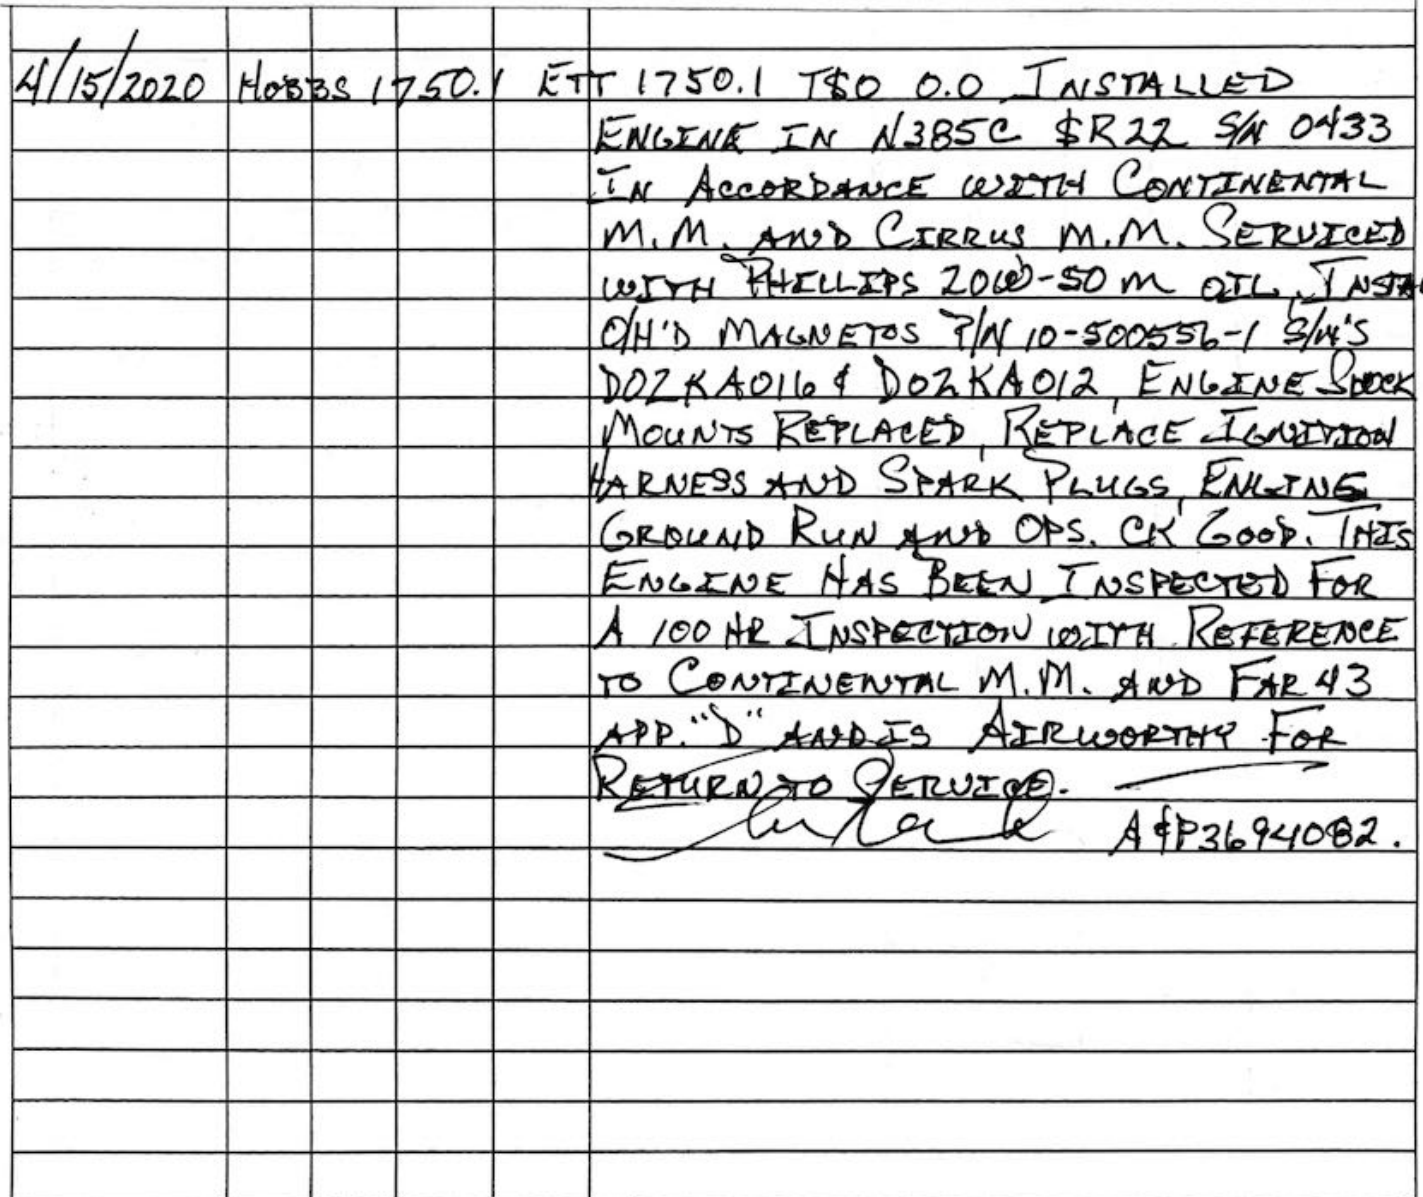 4/15/2020 HOBBS 1750.1 ETT 1750.1 TSO 0.0 INSTALLED
ENGINE IN N385C SR22 S/N 0433
IN ACCORDANCE WITH CONTINENTAL
M.M. AND CIRRUS M.M. SERVICED
WITH PHILLIPS 20W-50 M OIL, INSTAL
O/H'D MAGNETOS P/N 10-500556-1 S/N'S
D02KA016 & D02KA012, ENGINE SHOCK
MOUNTS REPLACED, REPLACE IGNITION
HARNESS AND SPARK PLUGS, ENGINE
GROUND RUN AND OPS. CK GOOD. THIS
ENGINE HAS BEEN INSPECTED FOR
A 100 HR INSPECTION WITH REFERENCE
TO CONTINENTAL M.M. AND FAR 43
APP. "D" AND IS AIRWORTHY FOR
RETURN TO SERVICE.
A&P3694082.